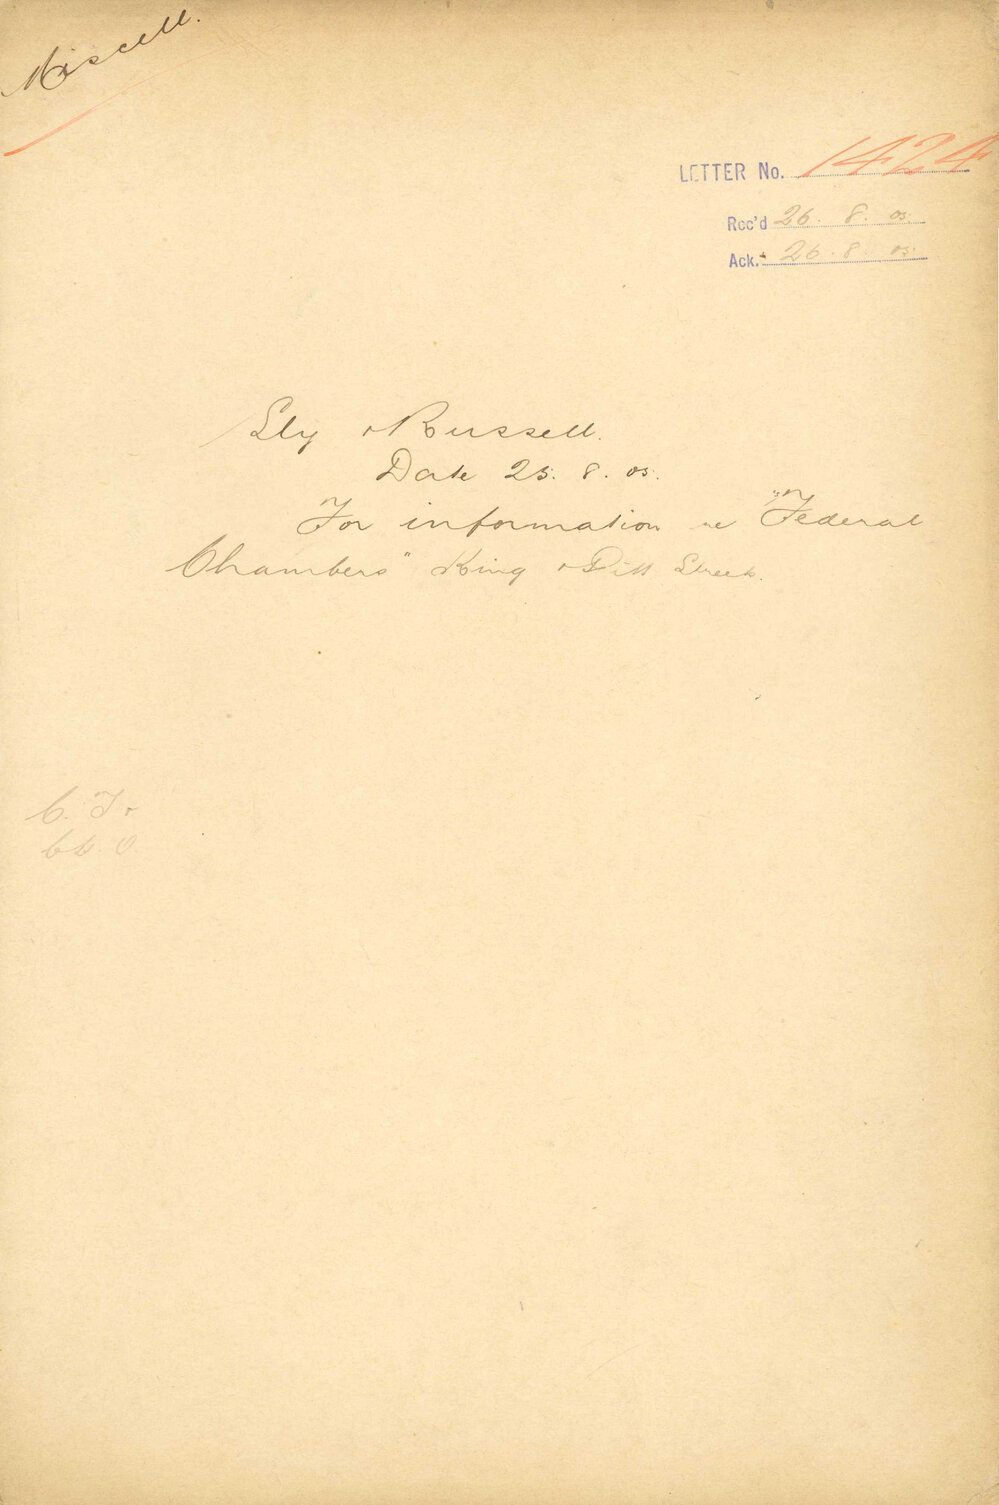 Miscell.
LETTER No. 1424
Rec'd 26. 8. 05.
Ack. 26. 8. 05.
Sly & Russell.
Date 25. 8. 05.
For information re "Federal
Chambers" King & Pitt Streets.
C. Fr